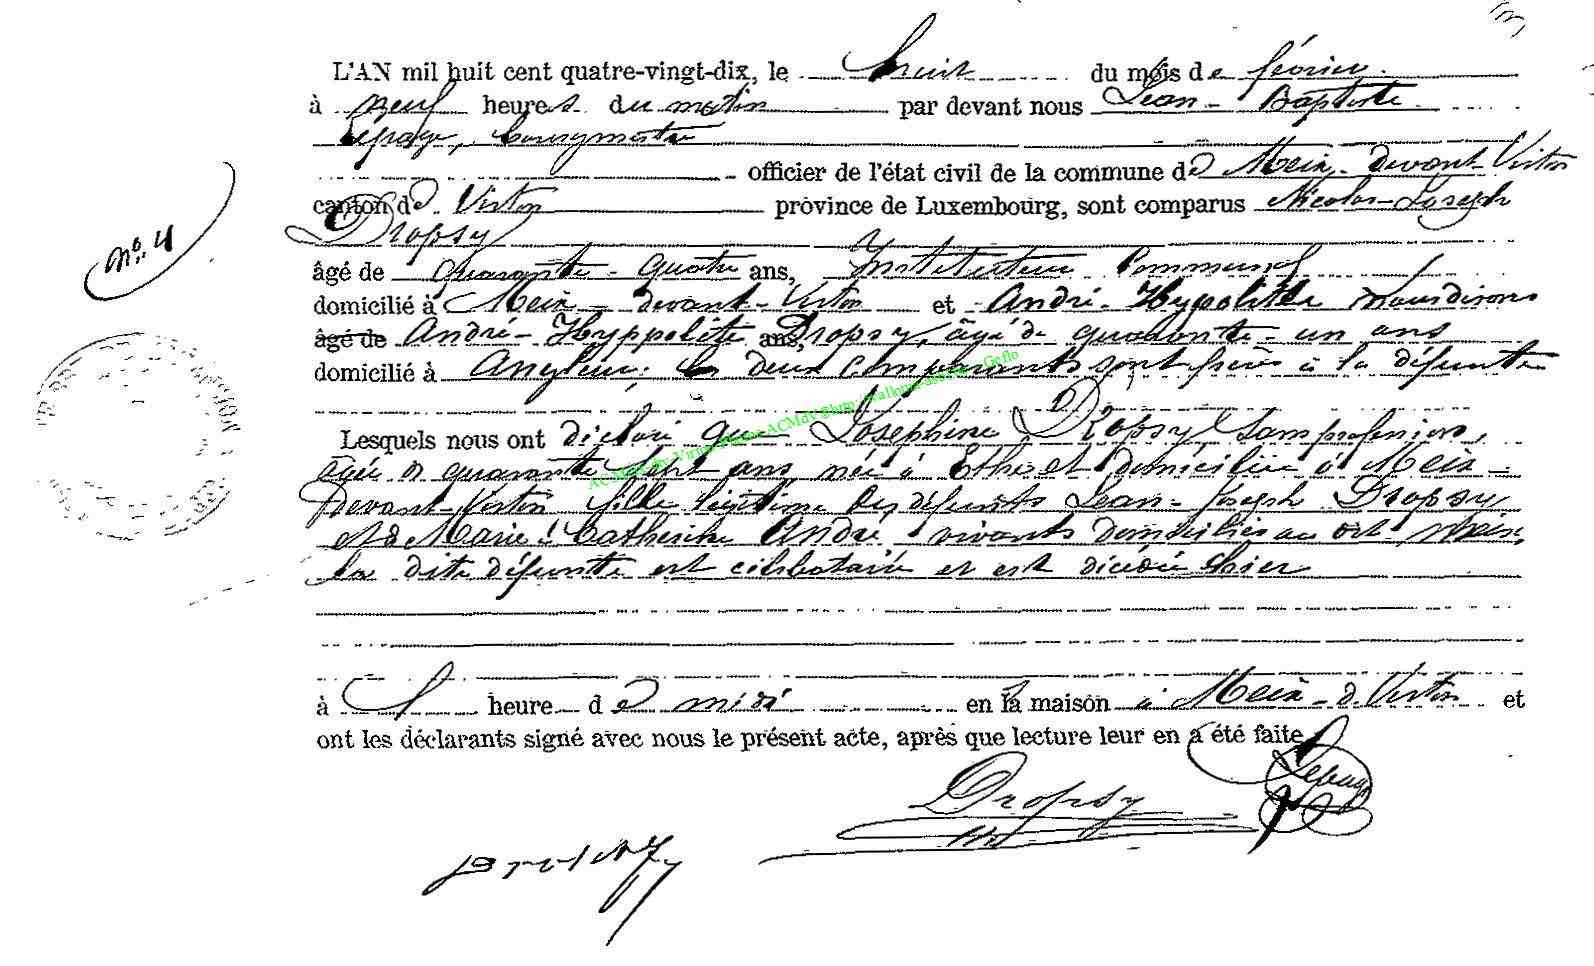 L'AN mil huit cent quatre-vingt-dix, le huit du mois de février
à neuf heures du matin par devant nous Jean-Baptiste
Lepage, bourgmestre
officier de l'état civil de la commune de Meix-devant-Virton
canton de Virton province de Luxembourg, sont comparus Nicolas-Joseph
Dropsy
N°. 4
âgé de quarante-quatre ans, Instituteur Communal
domicilié à Meix-devant-Virton et André-Hypolithe nous disons
âgé de André-Hyppolite ans, Dropsy, âgé de quarante-un ans
domicilié à Angleur; les deux comparants sont frères à la défunte
Lesquels nous ont déclaré que Joséphine Dropsy sans profession,
âgée de quarante sept ans, née à Ethe et domiciliée à Meix-
Devant-Virton fille légitime des défunts Jean-Joseph Dropsy
et de Marie-Catherine André, vivants domiciliés au dit Meix,
la dite défunte est célibataire et est décédée hier
à heure de midi en la maison à Meix-d-Virton et
ont les déclarants signé avec nous le présent acte, après que lecture leur en a été faite
Lepage
Dropsy
Dropsy